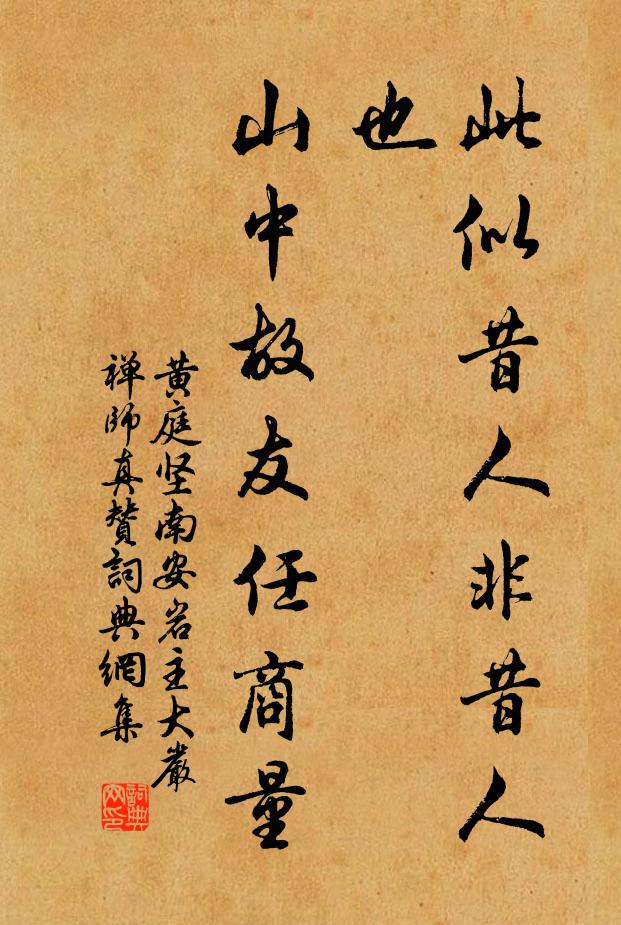 此似昔人非昔人
也
山中故友任商量
黄庭坚南安岩主大嚴
禅師真賛詞典網集
詞典
网印